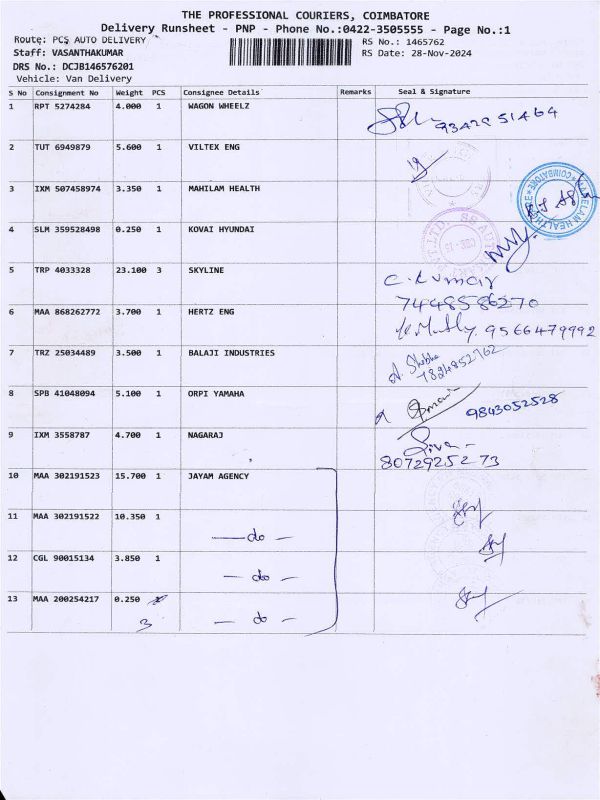 THE PROFESSIONAL COURIERS, COIMBATORE
Delivery Runsheet - PNP - Phone No.:0422-3505555 - Page No.:1
Route: PCS AUTO DELIVERY
Staff: VASANTHAKUMAR
DRS No.: DCJB146576201
Vehicle: Van Delivery
RS No.: 1465762
RS Date: 28-Nov-2024
S No Consignment No Weight PCS Consignee Details Remarks Seal & Signature
1 RPT 5274284 4.000 1 WAGON WHEELZ
2 TUT 6949879 5.600 1 VILTEX ENG
3 IXM 507458974 3.350 1 MAHILAM HEALTH
4 SLM 359528498 0.250 1 KOVAI HYUNDAI
5 TRP 4033328 23.100 3 SKYLINE C. Kumar
7448586270
6 MAA 868262772 3.700 1 HERTZ ENG 9566479992
7 TRZ 25034489 3.500 1 BALAJI INDUSTRIES
8 SPB 41048094 5.100 1 ORPI YAMAHA 9843052528
9 IXM 3558787 4.700 1 NAGARAJ Siva
8072925273
10 MAA 302191523 15.700 1 JAYAM AGENCY
11 MAA 302191522 10.350 1 — do —
12 CGL 90015134 3.850 1 — do —
13 MAA 200254217 0.250 3 — do —